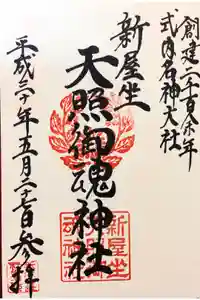 創建二千百余年
式内名神大社
新屋坐
天照御魂神社
平成三十年五月二七日参拝
新屋坐
天照御
魂神社